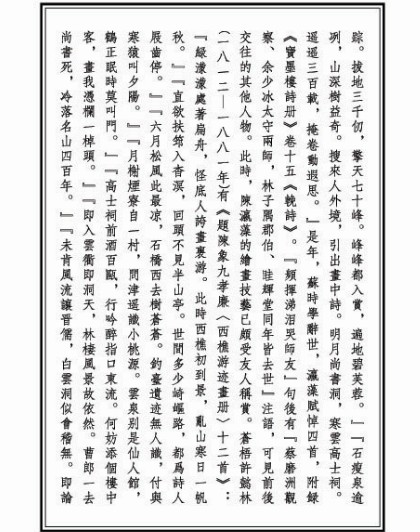 踪。拔地三千仞，擎天七十峰。峰峰都入賞，遍地碧芙蓉。』『石瘦泉逾
冽，山深樹益奇。搜來人外境，引出畫中詩。明月尚書洞，寒雲高士祠。
遥遥三百載，掩卷動遐思。』是年，蘇時學辭世，瀛藻賦悼四首，附録
《寶墨樓詩册》卷十五《輓詩》。『頻揮涕泪哭師友』句後有『蔡磨洲觀
察、余少冰太守兩師，林子禺郡伯、眭輝堂同年皆去世』注語，可見前後
交往的其他人物。此時，陳瀛藻的繪畫技藝已頗受友人稱賞。蒼梧許懿林
(一八一二—一八八一年)有《題陳象九孝廉〈西樵游迹畫册〉十二首》：
『緑濛濛處著扁舟，怪底人誇畫裏游。此時西樵初到景，亂山寒日一帆
秋。』『直欲扶筇入杳溟，回頭不見半山亭。世間多少崎嶇路，都爲詩人
屐齒停。』『六月松風此最凉，石橋西去樹蒼蒼。釣臺遺迹無人識，付與
寒猿叫夕陽。』『月榭煙寮自一村，問津遥識小桃源。雲泉别是仙人館，
鶴正眠時莫叫門。』『高士祠前酒百甌，行吟醉指口東流。何妨添個樓中
客，畫我憑欄一棹頭。』『即入雲衢即洞天，林棲風景故依然。曹郎一去
尚書死，冷落名山四百年。』『未肯風流讓晉儒，白雲洞似會稽無。即論